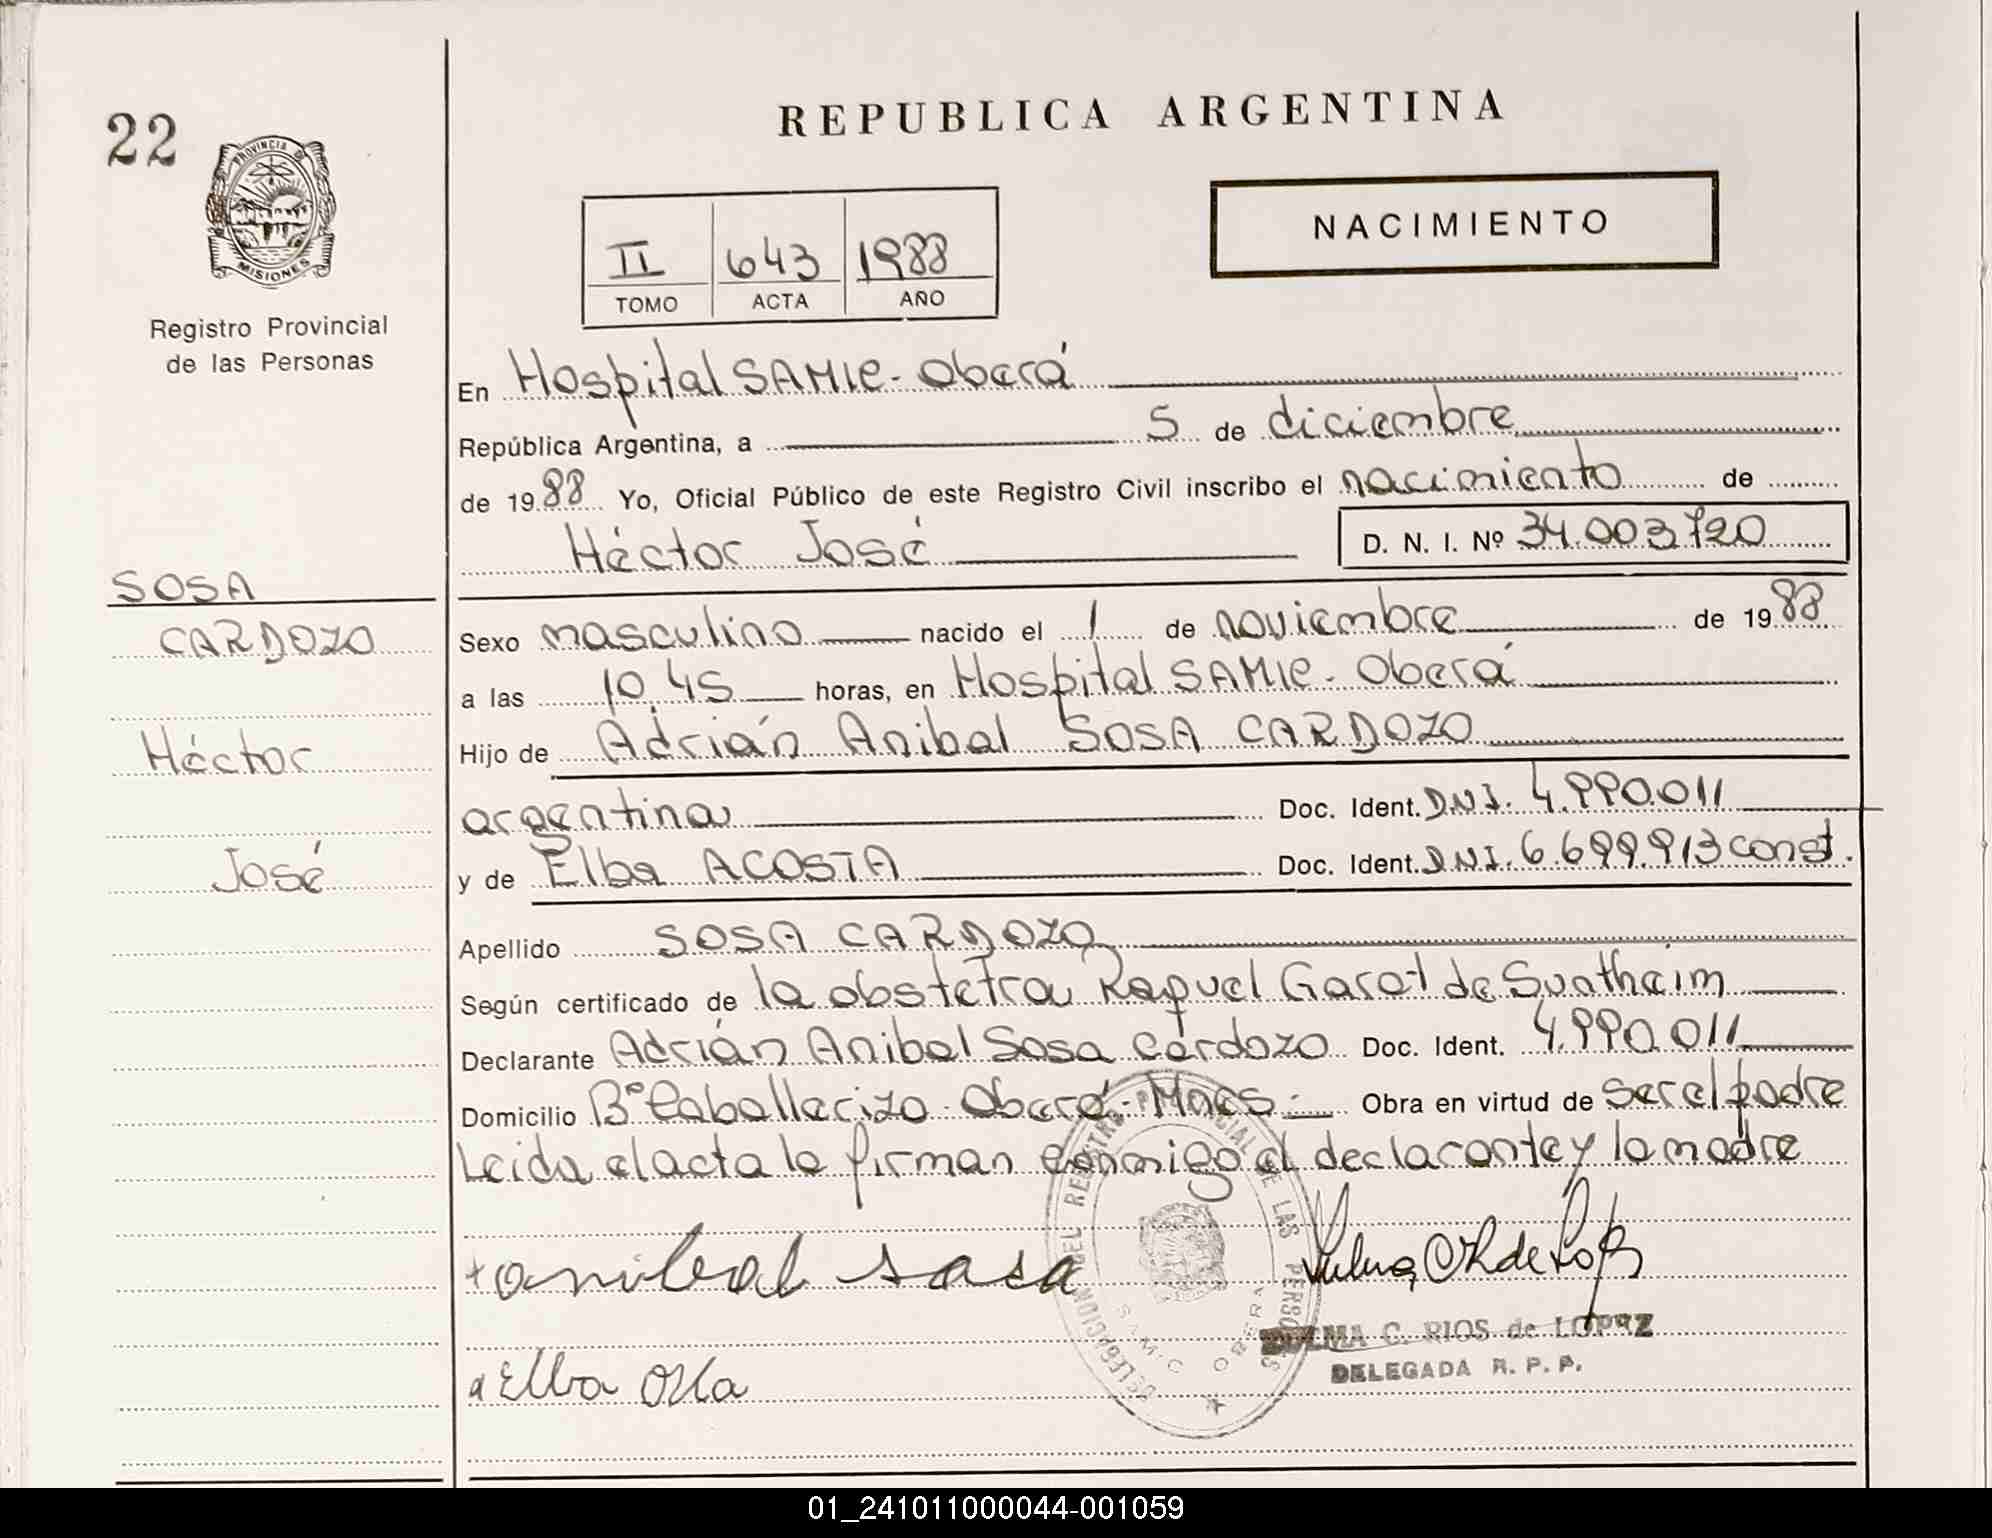 22
REPUBLICA ARGENTINA
PROVINCIA DE
MISIONES
Registro Provincial
de las Personas
NACIMIENTO
II 643 1988
TOMO ACTA AÑO
En Hospital SAMIC - Oberá
República Argentina, a 5 de diciembre
de 1988 Yo, Oficial Público de este Registro Civil inscribo el nacimiento de
Héctor José D. N. I. Nº 34.003.720
SOSA
CARDOZO
Héctor
José
Sexo masculino nacido el 1 de noviembre de 1988
a las 10,45 horas, en Hospital SAMIC - Oberá
Hijo de Adrián Anibal SOSA CARDOZO
argentina Doc. Ident. DNI. 4.990.011
y de Elba ACOSTA Doc. Ident. DNI. 6.699.913 const.
Apellido SOSA CARDOZO
Según certificado de la obstetra Raquel Garat de
Declarante Adrián Anibal Sosa Cardozo Doc. Ident. 4.990.011
Domicilio Bº Caballerizo - Oberá - Mnes. Obra en virtud de ser el padre
Leida el acta la firman conmigo el declarante y la madre
anibal sosa
ZULMA C. RIOS de LOPEZ
DELEGADA R. P. P.
Elba
DELEGACION DEL REGISTRO PROVINCIAL DE LAS PERSONAS
OBERA
01_241011000044-001059